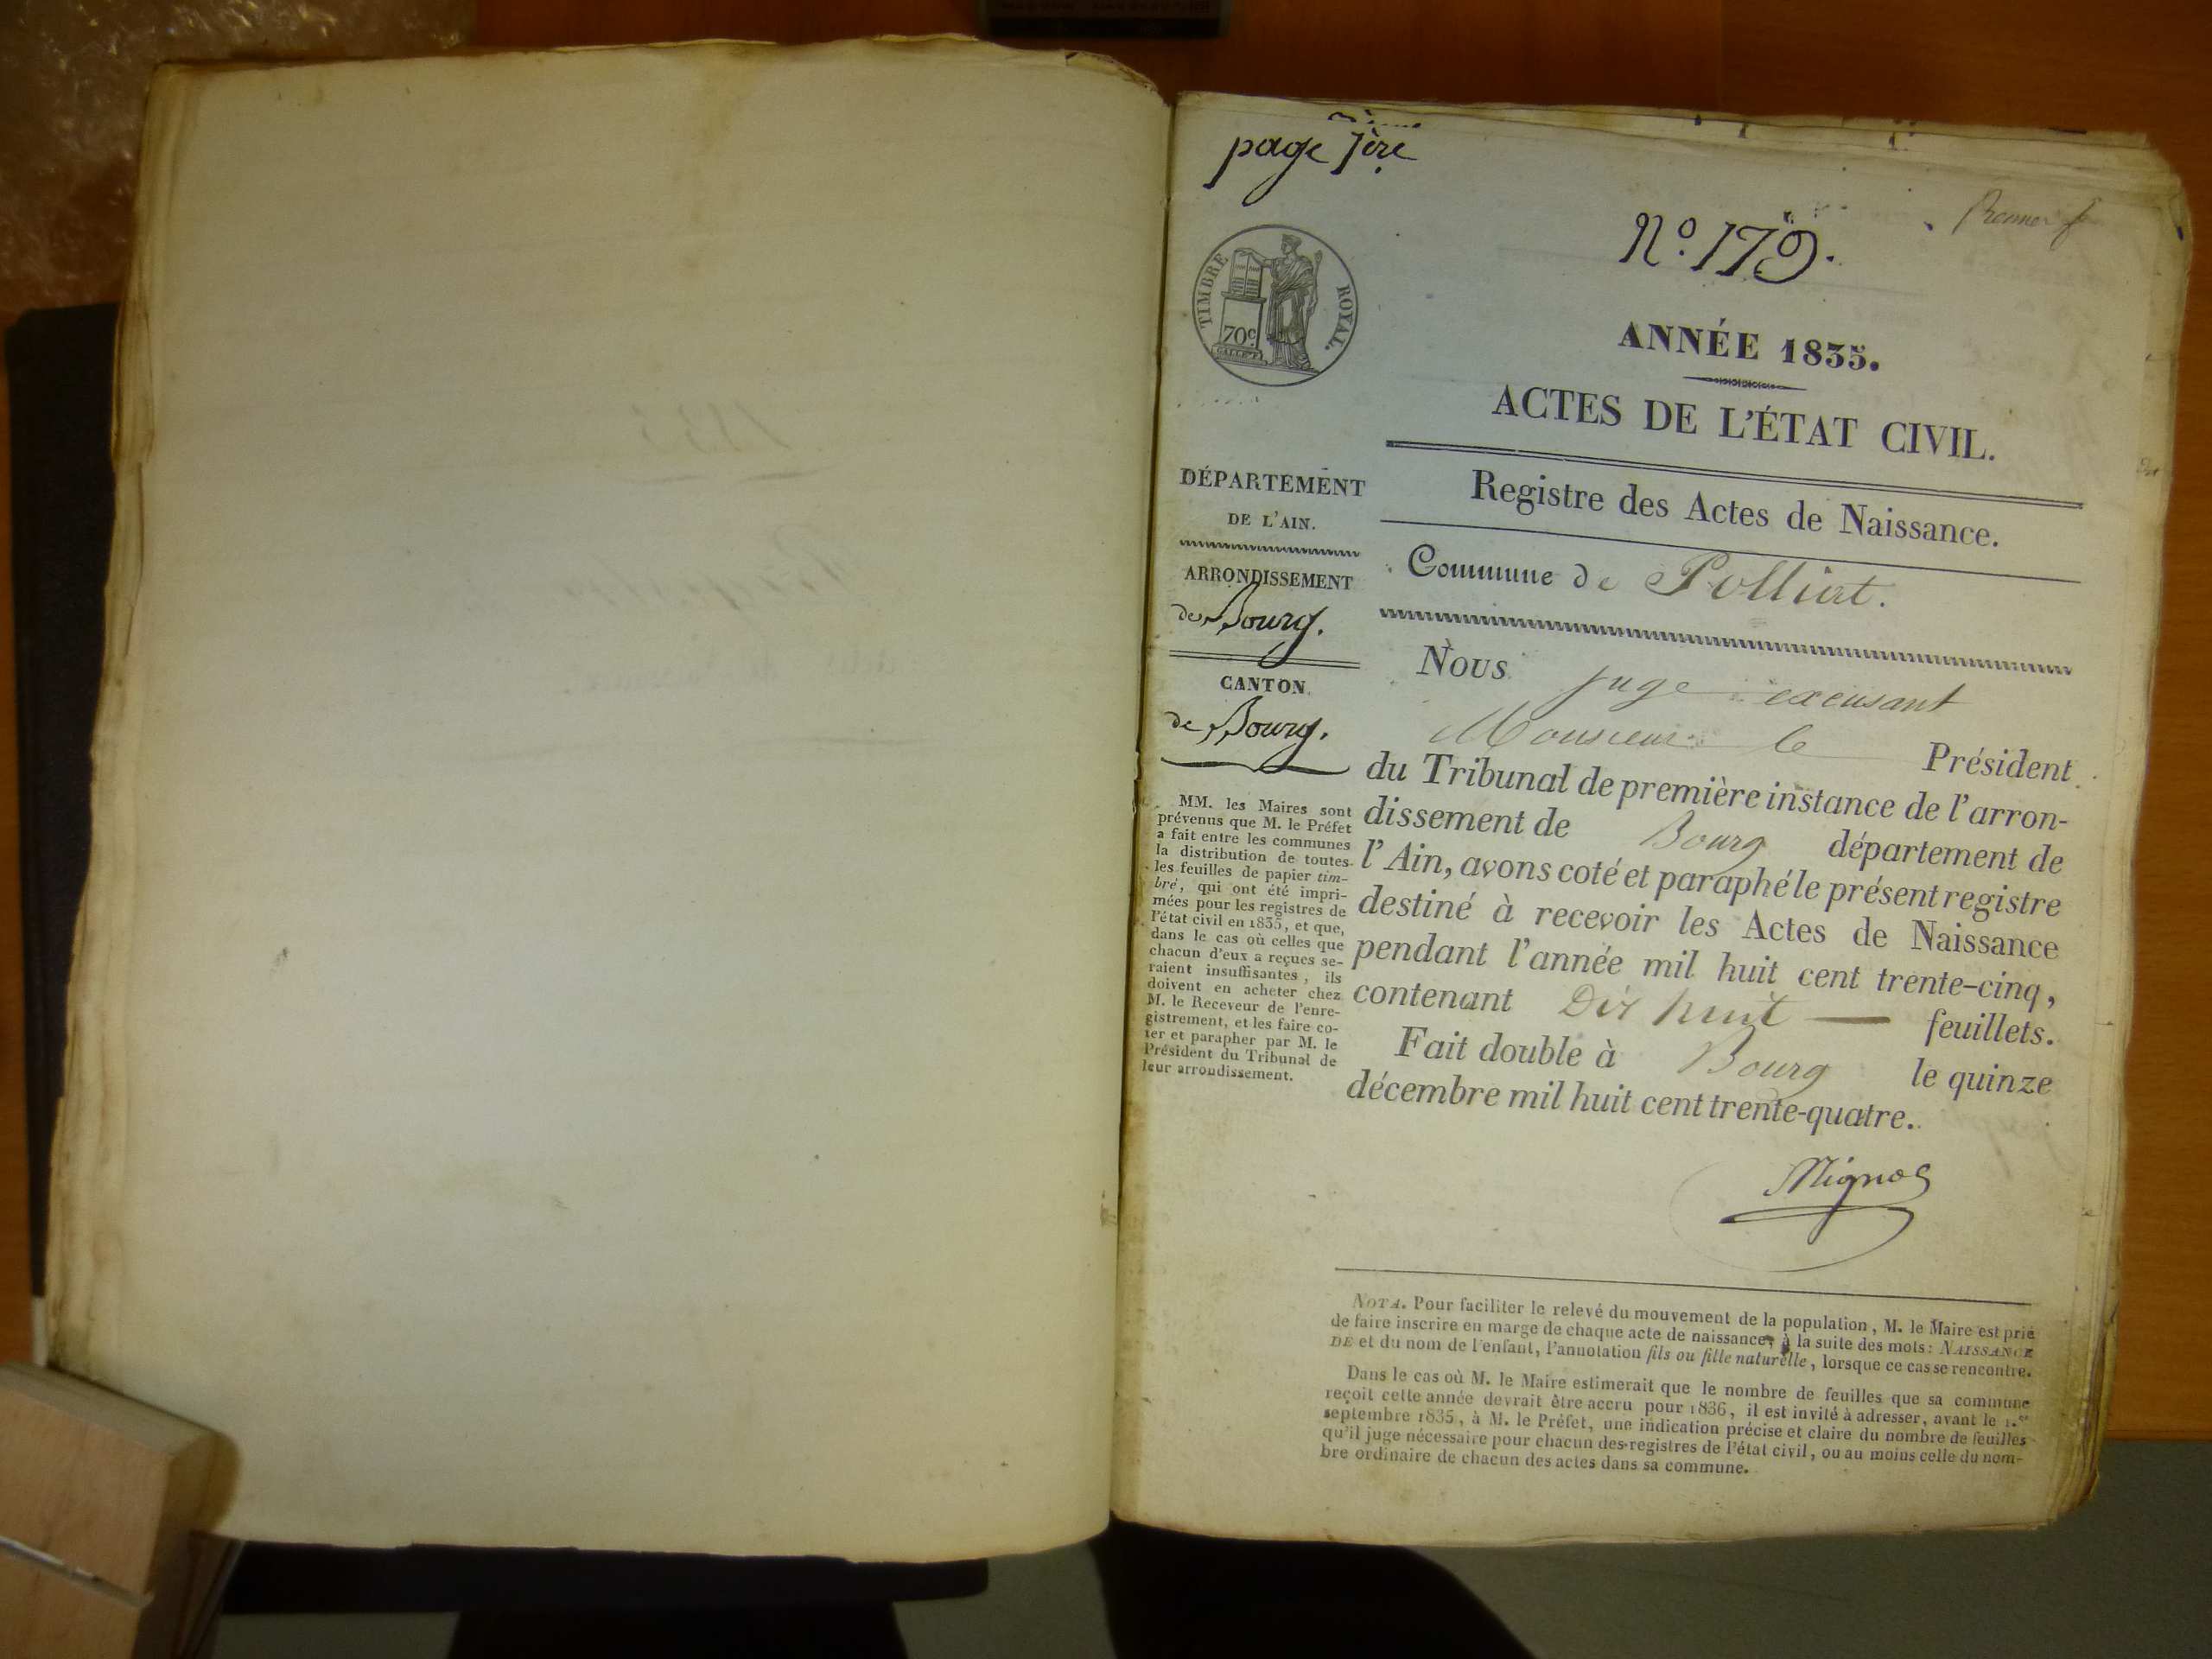 page 1ère
Premier
N.º 179.
TIMBRE ROYAL.
70c
ANNÉE 1835.
ACTES DE L'ÉTAT CIVIL.
Registre des Actes de Naissance.
Commune de Polliat.
DÉPARTEMENT
DE L'AIN.
ARRONDISSEMENT
de Bourg.
CANTON
de Bourg.
MM. les Maires sont
prévenus que M. le Préfet
a fait entre les communes
la distribution de toutes
les feuilles de papier tim-
bré, qui ont été impri-
mées pour les registres de
l'état civil en 1835, et que,
dans le cas où celles que
chacun d'eux a reçues se-
raient insuffisantes, ils
doivent en acheter chez
M. le Receveur de l'enre-
gistrement, et les faire co-
ter et parapher par M. le
Président du Tribunal de
leur arrondissement.
Nous juge excusant
Monsieur le Président
du Tribunal de première instance de l'arron-
dissement de Bourg département de
l'Ain, avons coté et paraphé le présent registre
destiné à recevoir les Actes de Naissance
pendant l'année mil huit cent trente-cinq,
contenant Dix huit feuillets.
Fait double à Bourg le quinze
décembre mil huit cent trente-quatre.
NOTA. Pour faciliter le relevé du mouvement de la population, M. le Maire est prié
de faire inscrire en marge de chaque acte de naissance, à la suite des mots: NAISSANCE
DE et du nom de l'enfant, l'annotation fils ou fille naturelle, lorsque ce cas se rencontre.
Dans le cas où M. le Maire estimerait que le nombre de feuilles que sa commune
reçoit cette année devrait être accru pour 1836, il est invité à adresser, avant le 1.er
septembre 1835, à M. le Préfet, une indication précise et claire du nombre de feuilles
qu'il juge nécessaire pour chacun des registres de l'état civil, ou au moins celle du nom-
bre ordinaire de chacun des actes dans sa commune.